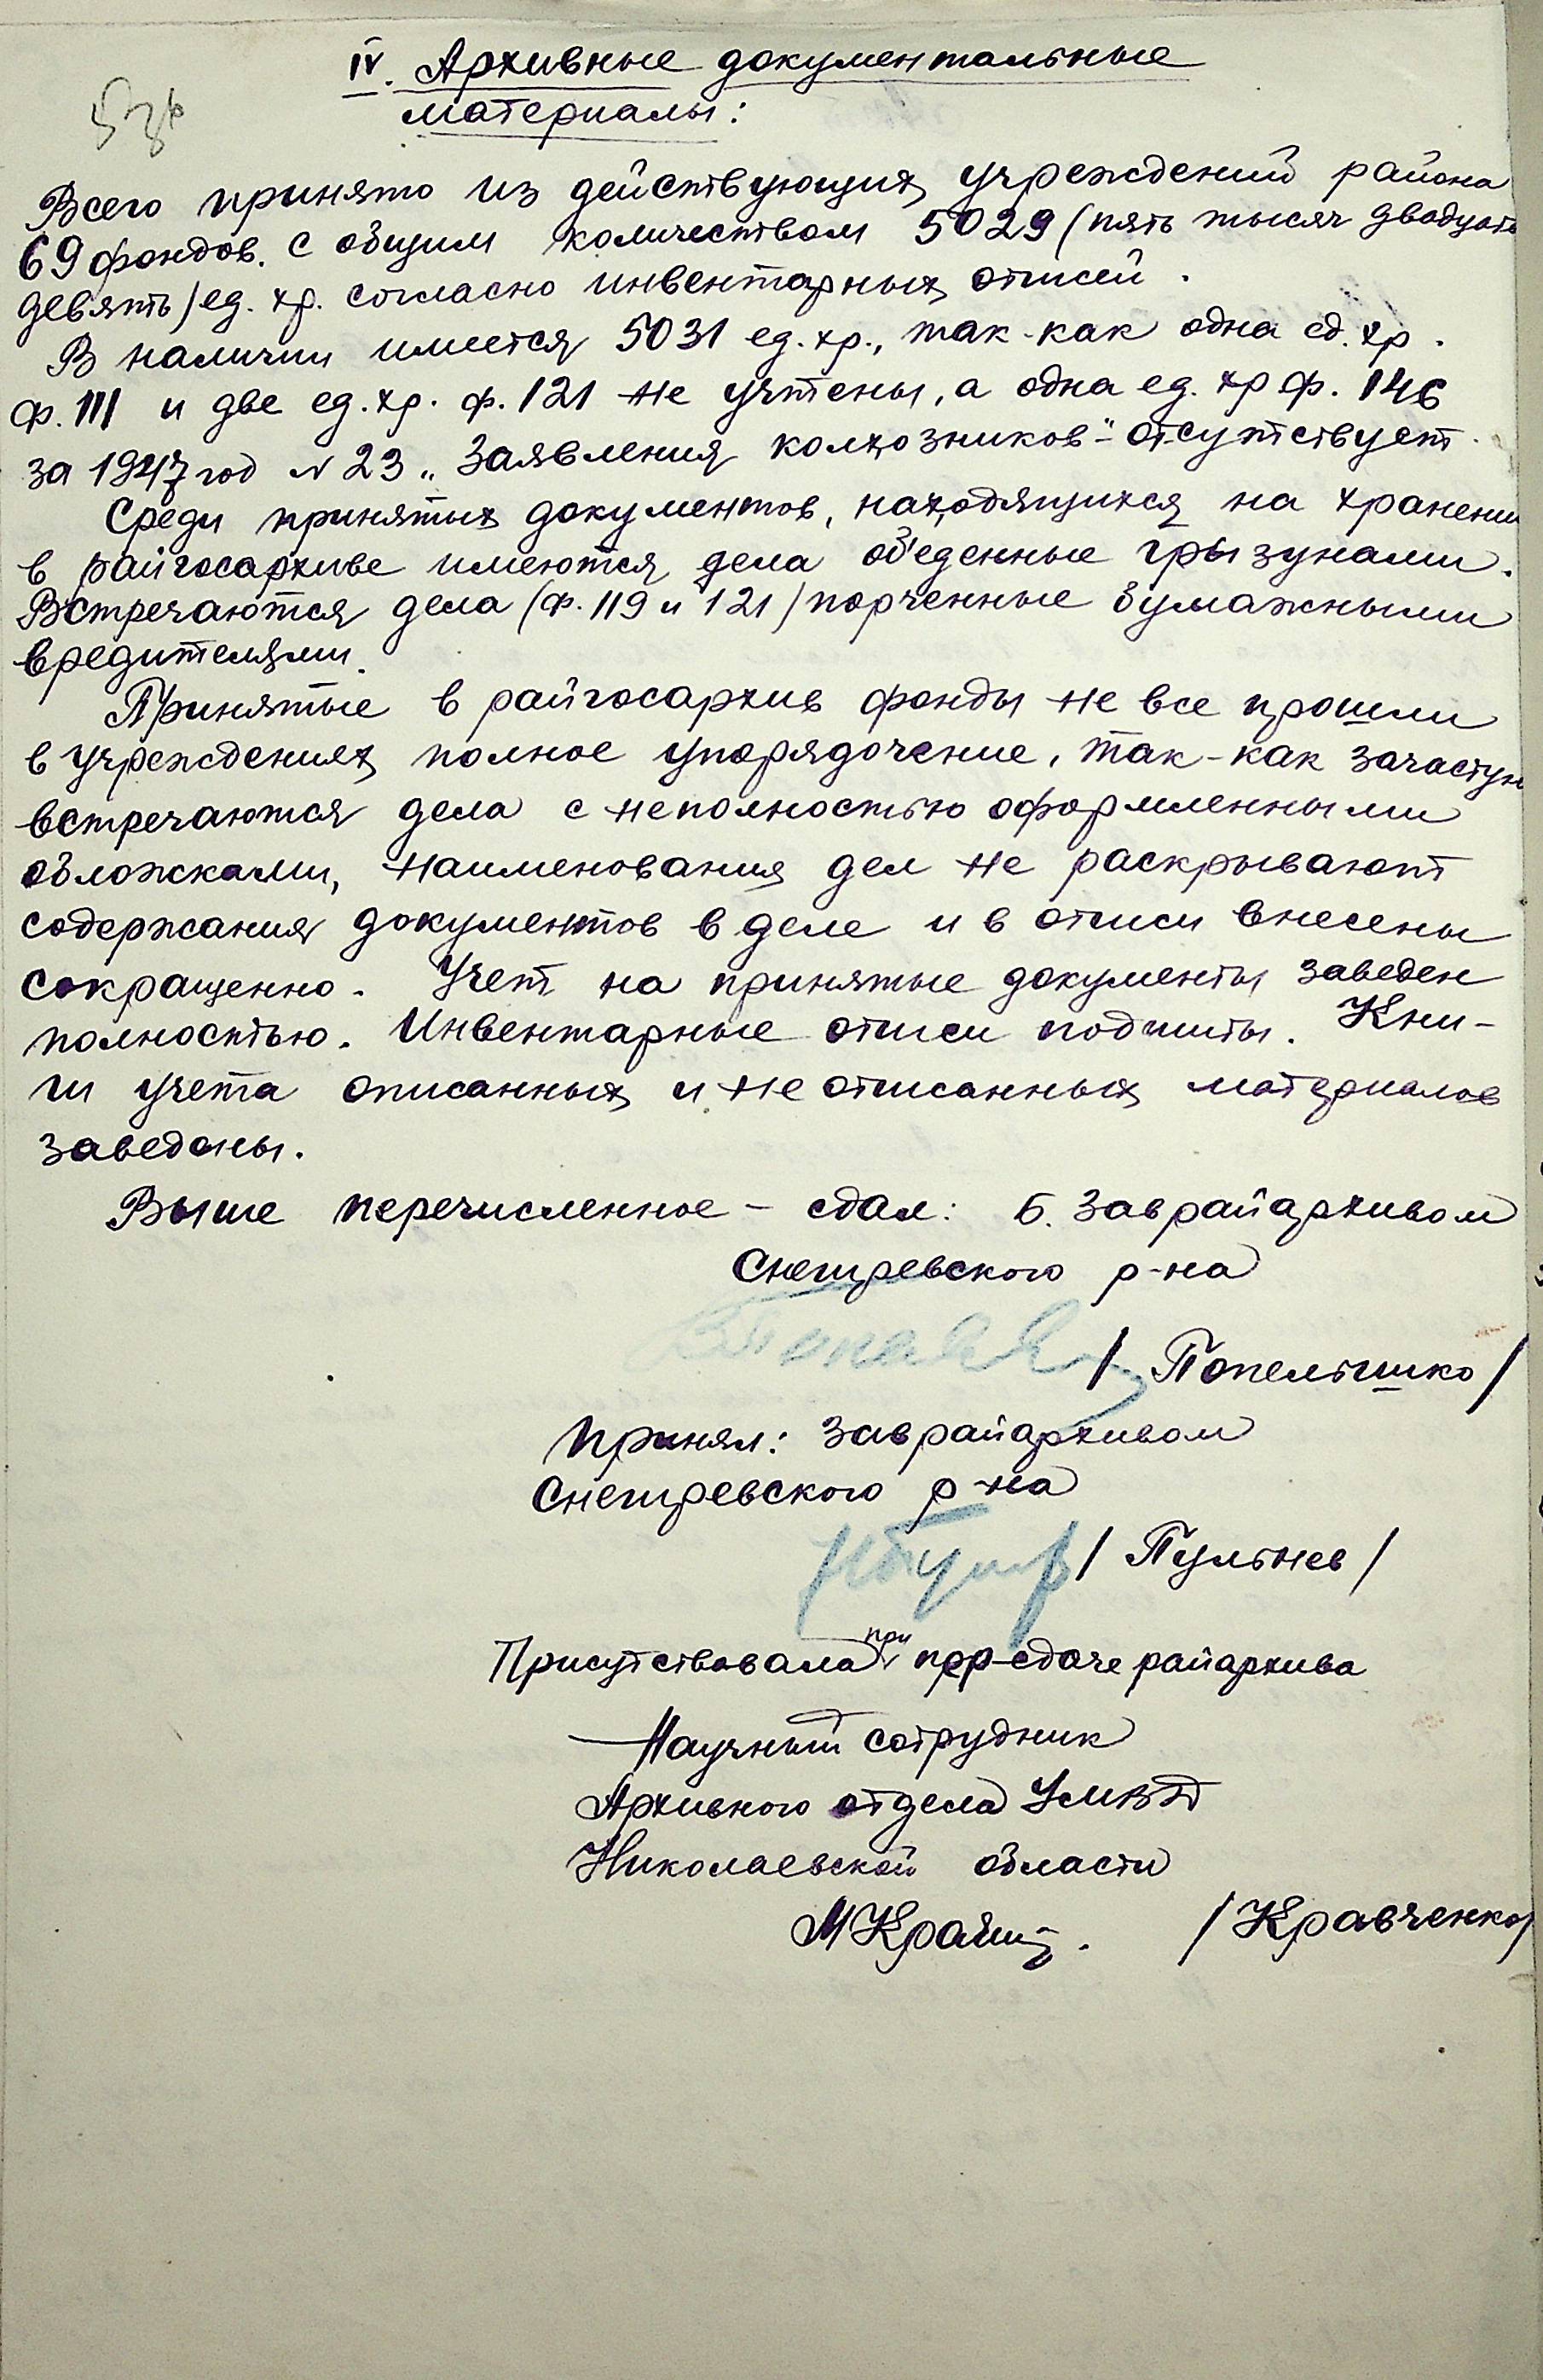 IV. Архивные документальные
материалы:
Всего принято из действующих учреждений района
69 фондов. с общим количеством 5029 (пять тысяч двадцать
девять) ед. хр. согласно инвентарных описей.
В наличии имеется 5031 ед. хр., так-как одна ед. хр.
ф. 111 и две ед. хр. ф. 121 не учтены, а одна ед. хр ф. 146
за 1947 год N 23 „Заявления колхозников" - отсутствует.
Среди принятых документов, находящихся на хранении
в райгосархиве имеются дела об'еденные грызунами.
Встречаются дела (ф. 119 и 121) порченные бумажными
вредителями.
Принятые в райгосархив фонды не все прошли
в учреждениях полное упорядочение, так-как зачастую
встречаются дела с неполностью оформленными
обложками, наименования дел не раскрывают
содержания документов в деле и в описи внесены
сокращенно. Учет на принятые документы заведен
полностью. Инвентарные описи подшиты. Кни-
ги учета описанных и не описанных материалов
заведены.
Выше перечисленное - сдал: б. Заврайархивом
Снегиревского р-на
/ Попельшико /
Принял: Заврайархивом
Снегиревского р-на
/ Пульнев /
Присутствовала при сдаче райархива
Научный сотрудник
Архивного отдела УМВД
Николаевской области
/ Кравченко /